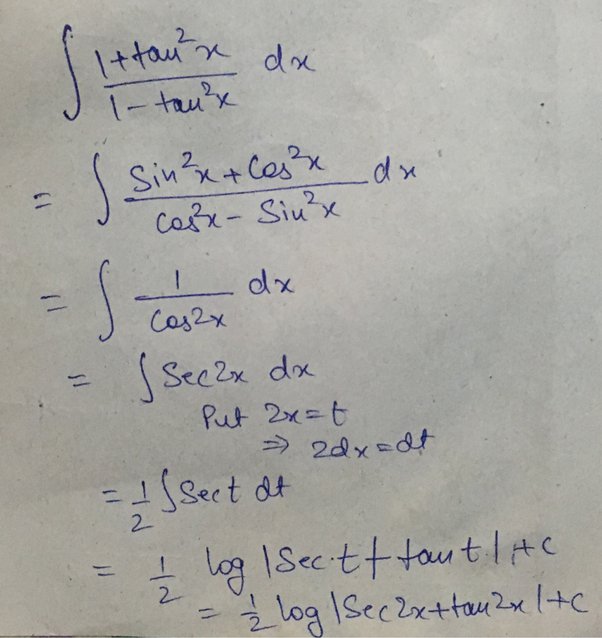 ∫ (1+tan²x)/(1-tan²x) dx
= ∫ (Sin²x+Cos²x)/(Cos²x-Sin²x) dx
= ∫ 1/Cos2x dx
= ∫ Sec2x dx
Put 2x=t
⇒ 2dx=dt
= 1/2 ∫ Sect dt
= 1/2 log |Sec t + tan t| + c
= 1/2 log |Sec2x+tan2x|+c